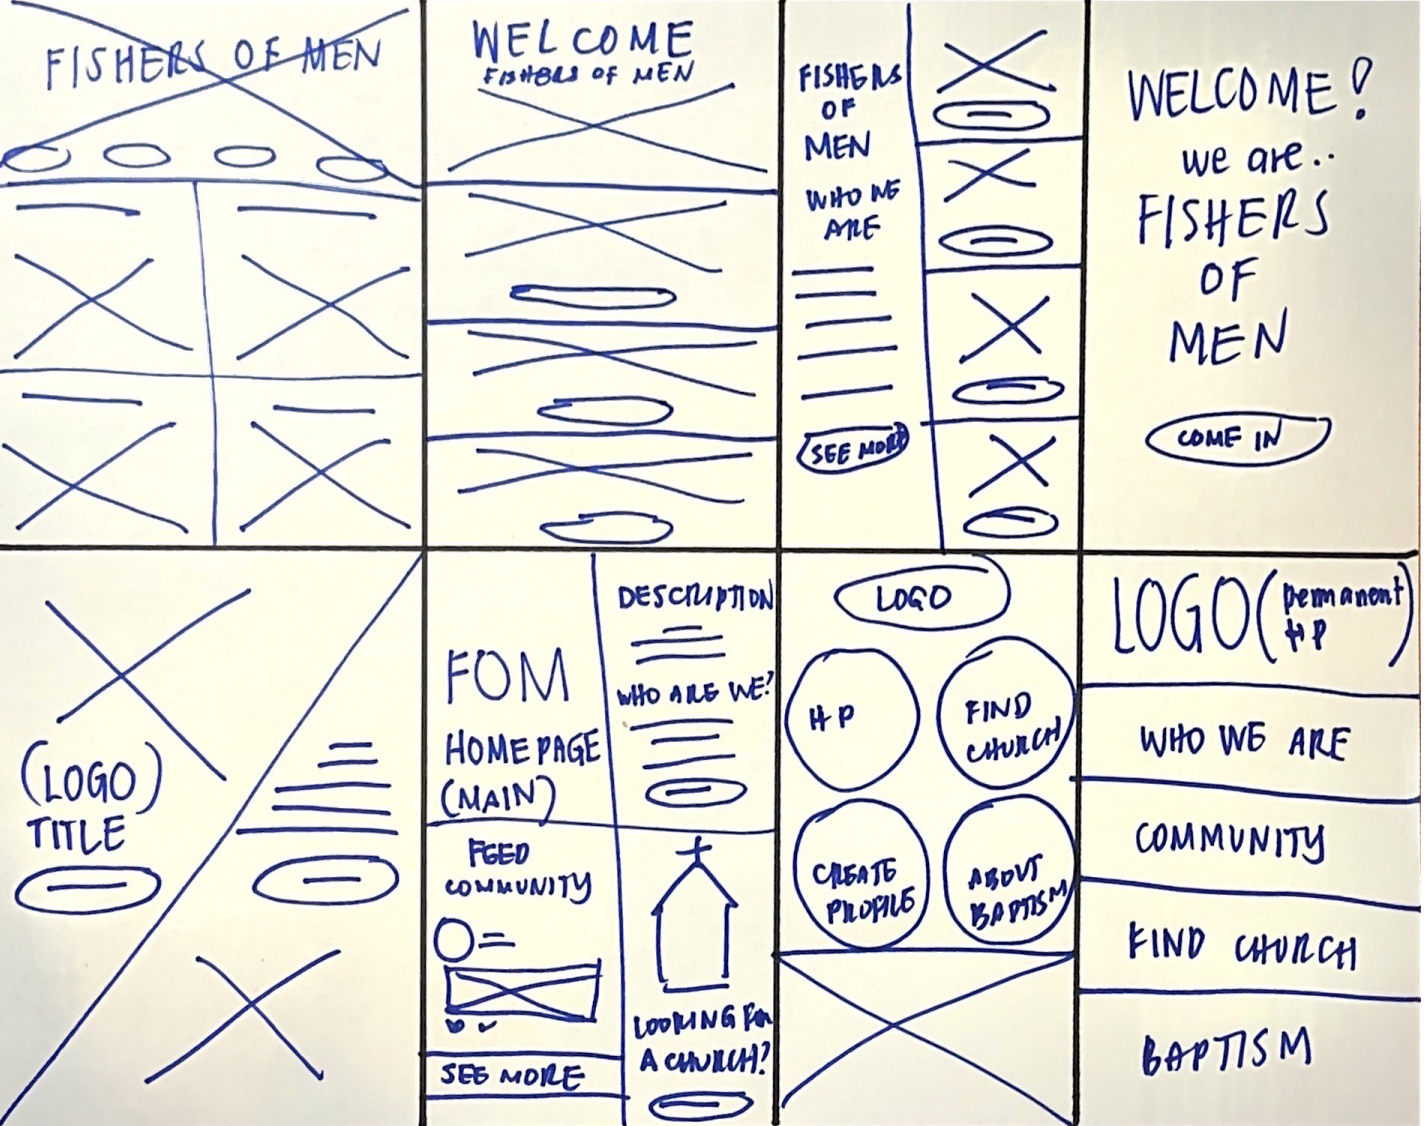 FISHERS OF MEN
WELCOME
FISHERS OF MEN
FISHERS
OF
MEN
WHO WE
ARE
SEE MORE
WELCOME!
we are..
FISHERS
OF
MEN
COME IN
(LOGO)
TITLE
FOM
HOMEPAGE
(MAIN)
DESCRIPTION
WHO ARE WE?
FEED
COMMUNITY
SEE MORE
LOOKING FOR
A CHURCH?
LOGO
HP
FIND
CHURCH
CREATE
PROFILE
ABOUT
BAPTISM
LOGO (permanent
HP)
WHO WE ARE
COMMUNITY
FIND CHURCH
BAPTISM